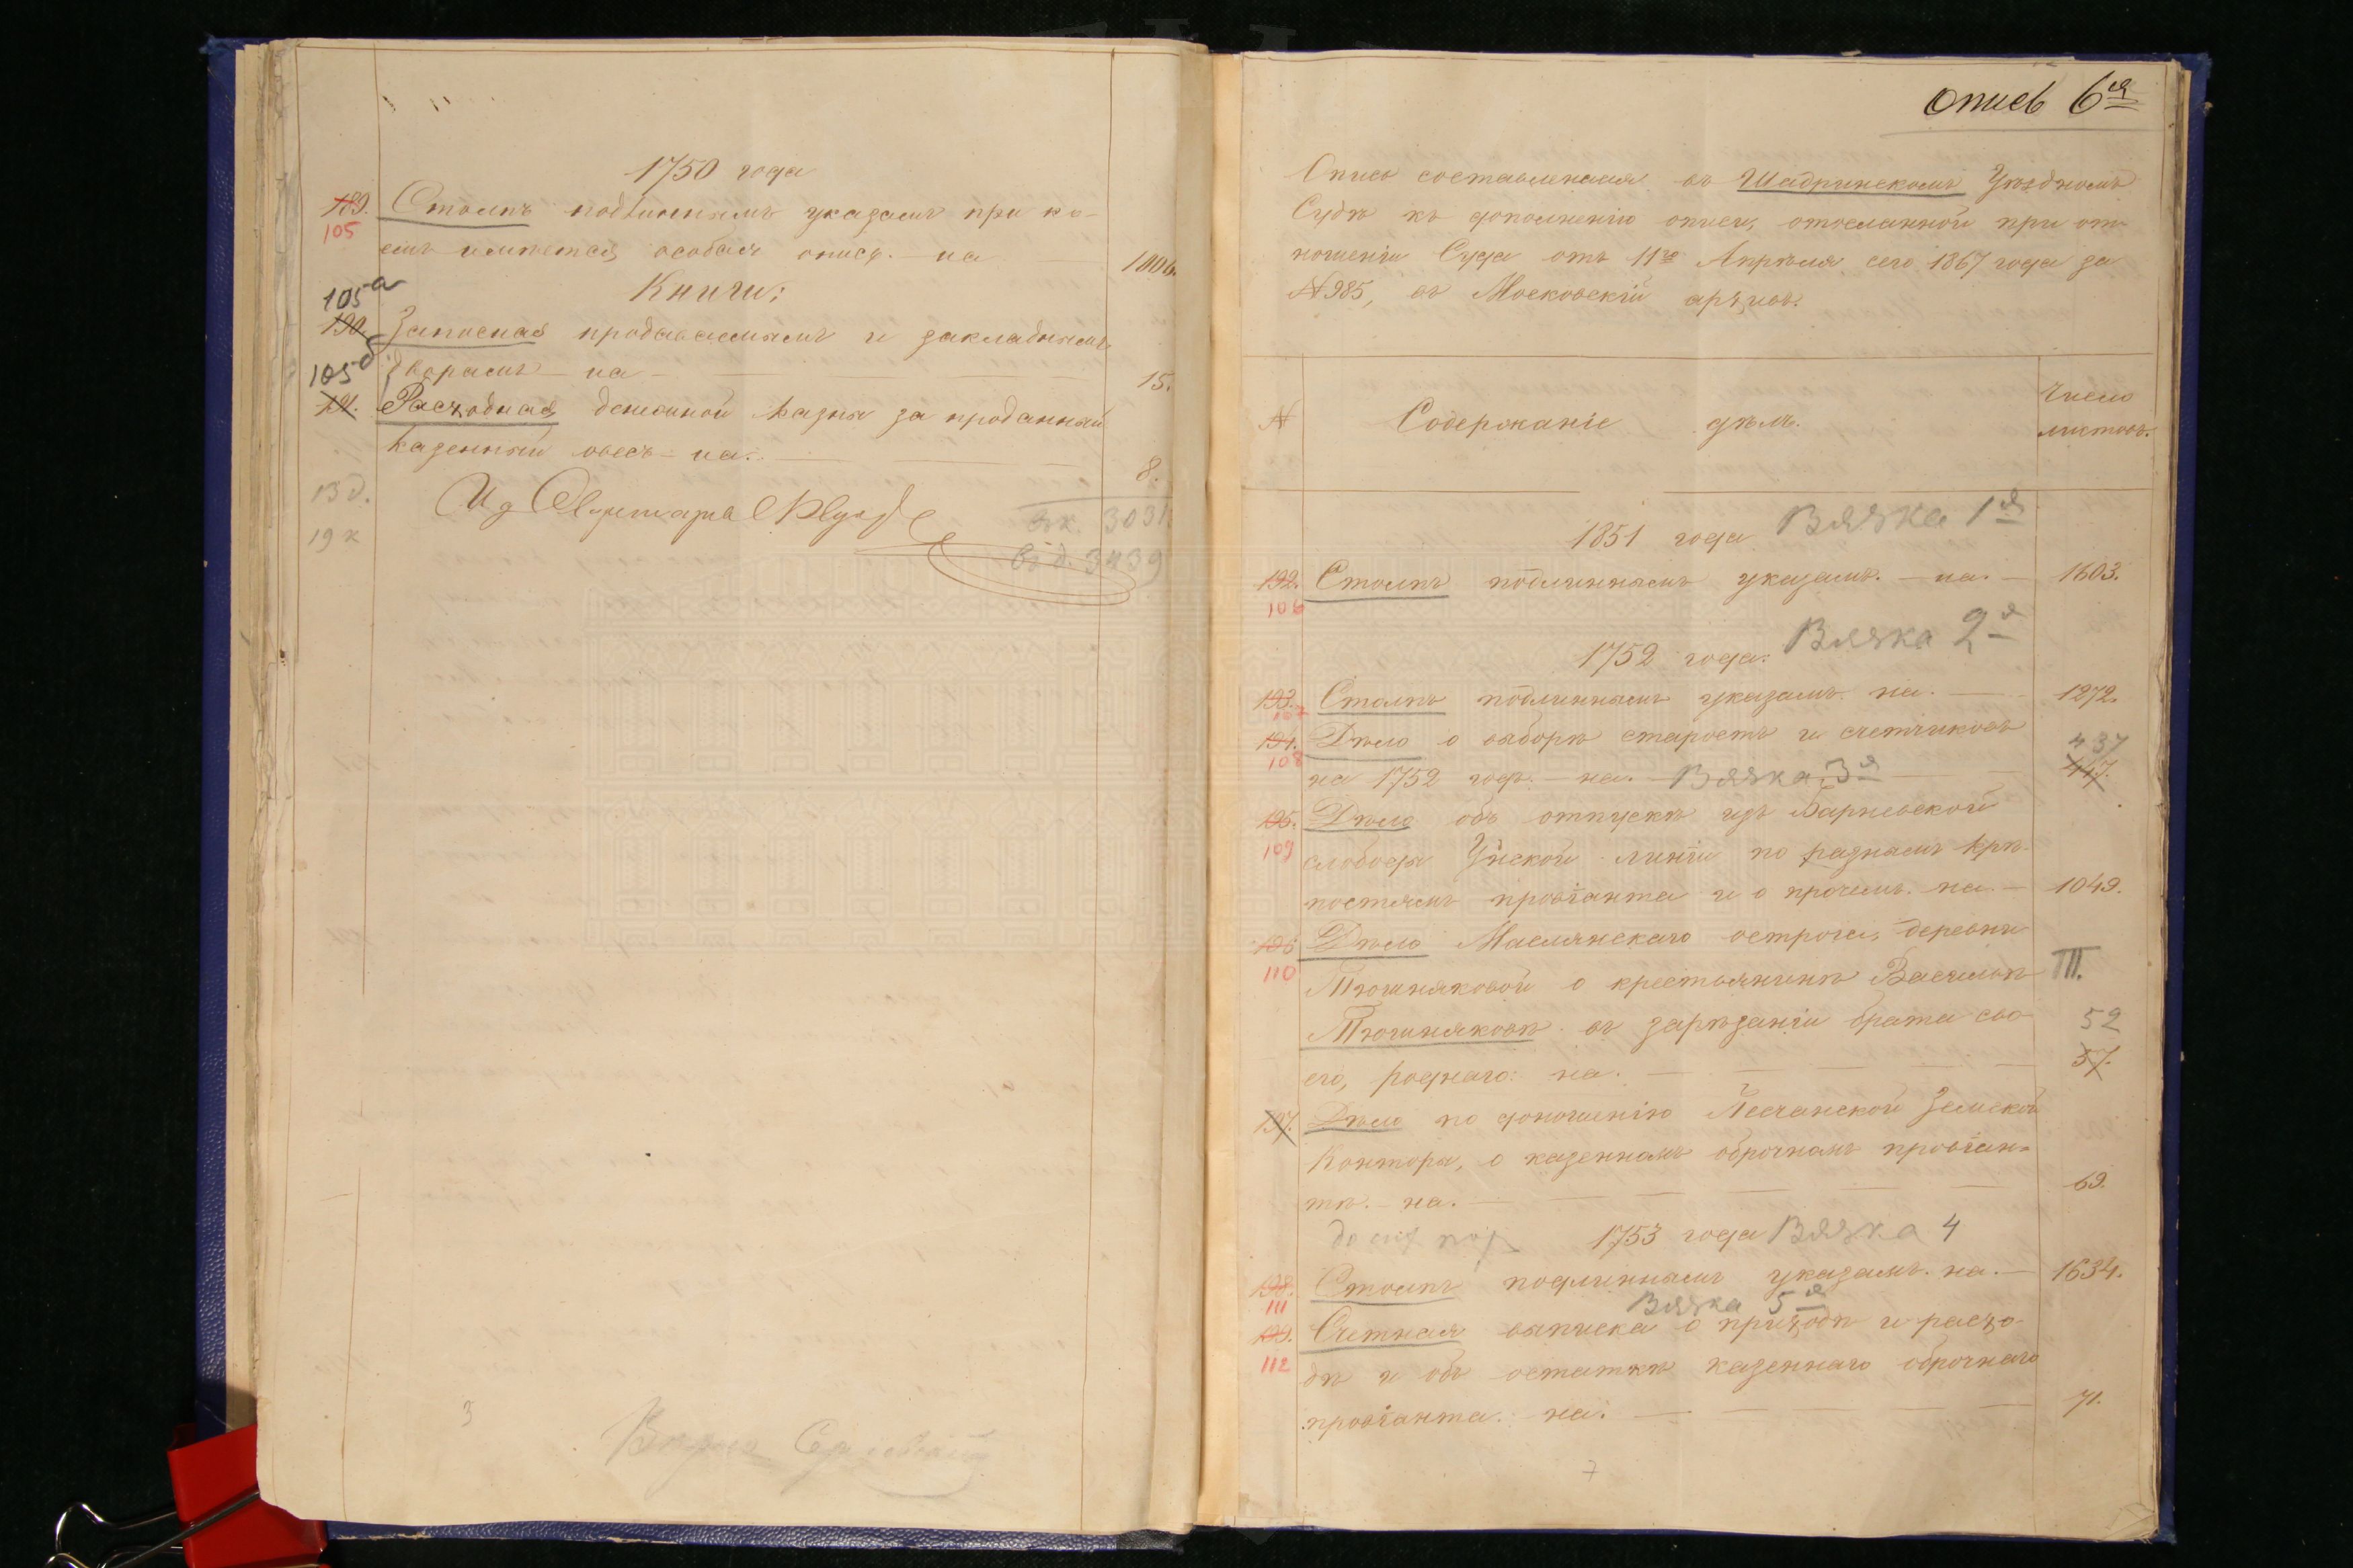 1750 года
189. Столпъ подлиннымъ указамъ при ко-
105
емъ имѣется особая опись. на 1006.
Книги:
105а
190. Записная продаваемымъ и закладнымъ
дворамъ на 15.
105б
191. Расходная денежной казны за проданный
казенный овесъ на. 8.
13 д.
19 к
3439
3
опись 6ая
Опись составленная въ Шадринскомъ Уѣздномъ
Судѣ къ дополненію описи, отосланной при от-
ношеніи Суда отъ 11го Апрѣля сего 1867 года за
№ 985, въ Московскій архивъ.
№ Содержаніе дѣлъ. Число
листовъ.
1851 года Вязка 1я
192. Столпъ подлиннымъ указамъ. на. 1603.
106
1752 года. Вязка 2я
193. Столпъ подлиннымъ указамъ. на. 1272.
107
194. Дѣло о выборѣ старостъ и счетчиковъ
108
437
на 1752 годъ. на. Вязка 3я 447.
195. Дѣло объ отпускѣ изъ Барневской
109
слободы Уйской линіи по разнымъ крѣ-
постямъ провіанта и о прочемъ. на. 1049.
196 Дѣло Маслянскаго острога, деревни
110
Тюшняковой о крестьянинѣ Васильѣ III.
Тюшняковѣ въ зарѣзаніи брата сво- 52
его, роднаго: на. 57.
197. Дѣло по доношенію Песчанской Земской
Конторы, о казенномъ оброчномъ провіан-
тѣ. на. 69.
1753 года Вязка 4
198. Столпъ подлиннымъ указамъ. на. 1634.
111
Вязка 5я
199. Счетная выписка о приходѣ и расхо-
112
дѣ и объ остаткѣ казеннаго оброчнаго
провіанта. на. 71.
7